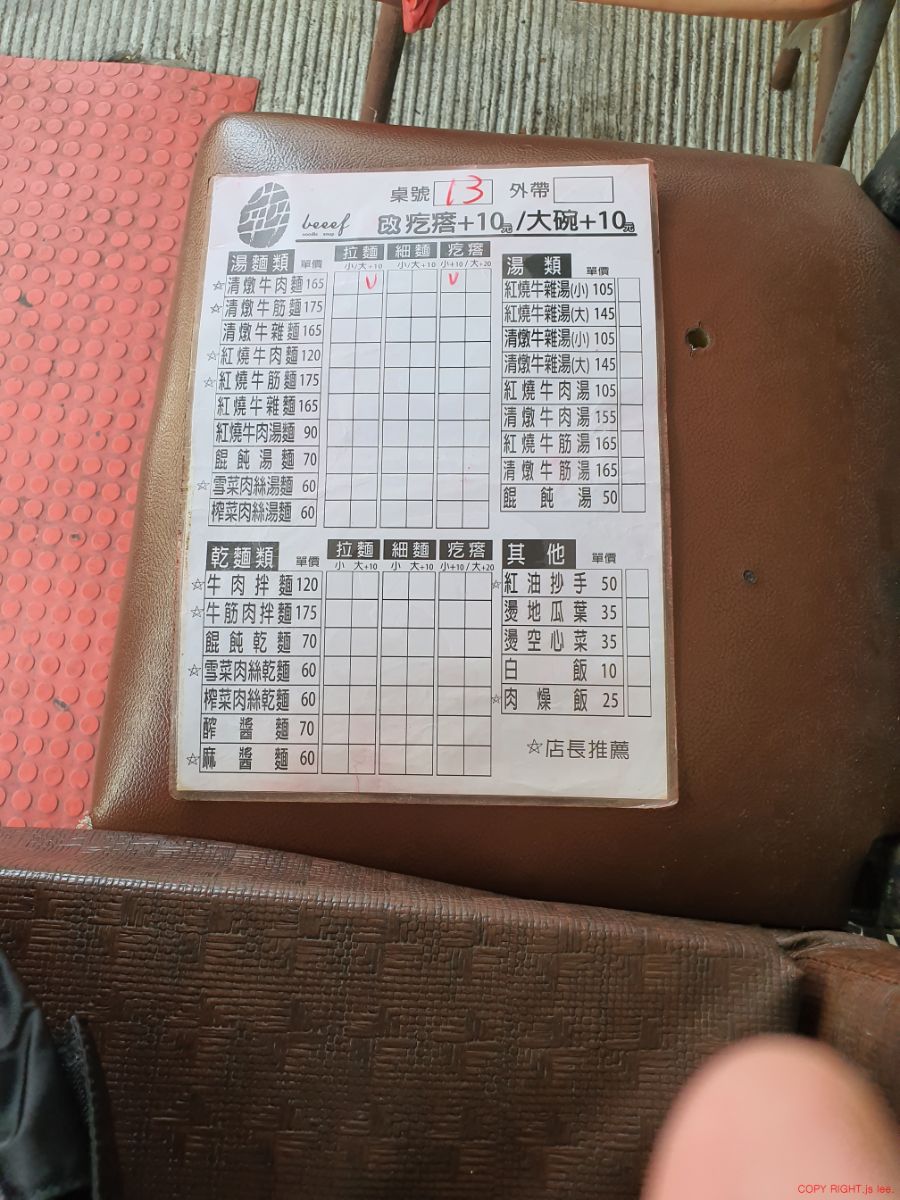 桌號 13 外帶
beeef
noodle soup
改疙瘩+10元/大碗+10元
湯麵類 單價 拉麵 細麵 疙瘩
小/大+10 小/大+10 小+10/大+20
☆清燉牛肉麵 165 V V
☆清燉牛筋麵 175
清燉牛雜麵 165
☆紅燒牛肉麵 120
☆紅燒牛筋麵 175
紅燒牛雜麵 165
紅燒牛肉湯麵 90
餛飩湯麵 70
☆雪菜肉絲湯麵 60
榨菜肉絲湯麵 60
湯類 單價
紅燒牛雜湯(小) 105
紅燒牛雜湯(大) 145
清燉牛雜湯(小) 105
清燉牛雜湯(大) 145
紅燒牛肉湯 105
清燉牛肉湯 155
紅燒牛筋湯 165
清燉牛筋湯 165
餛飩湯 50
乾麵類 單價 拉麵 細麵 疙瘩
小 大+10 小 大+10 小+10/大+20
☆牛肉拌麵 120
☆牛筋肉拌麵 175
餛飩乾麵 70
☆雪菜肉絲乾麵 60
榨菜肉絲乾麵 60
醡醬麵 70
☆麻醬麵 60
其他 單價
☆紅油抄手 50
燙地瓜葉 35
燙空心菜 35
白飯 10
☆肉燥飯 25
☆店長推薦
COPY RIGHT.js lee.